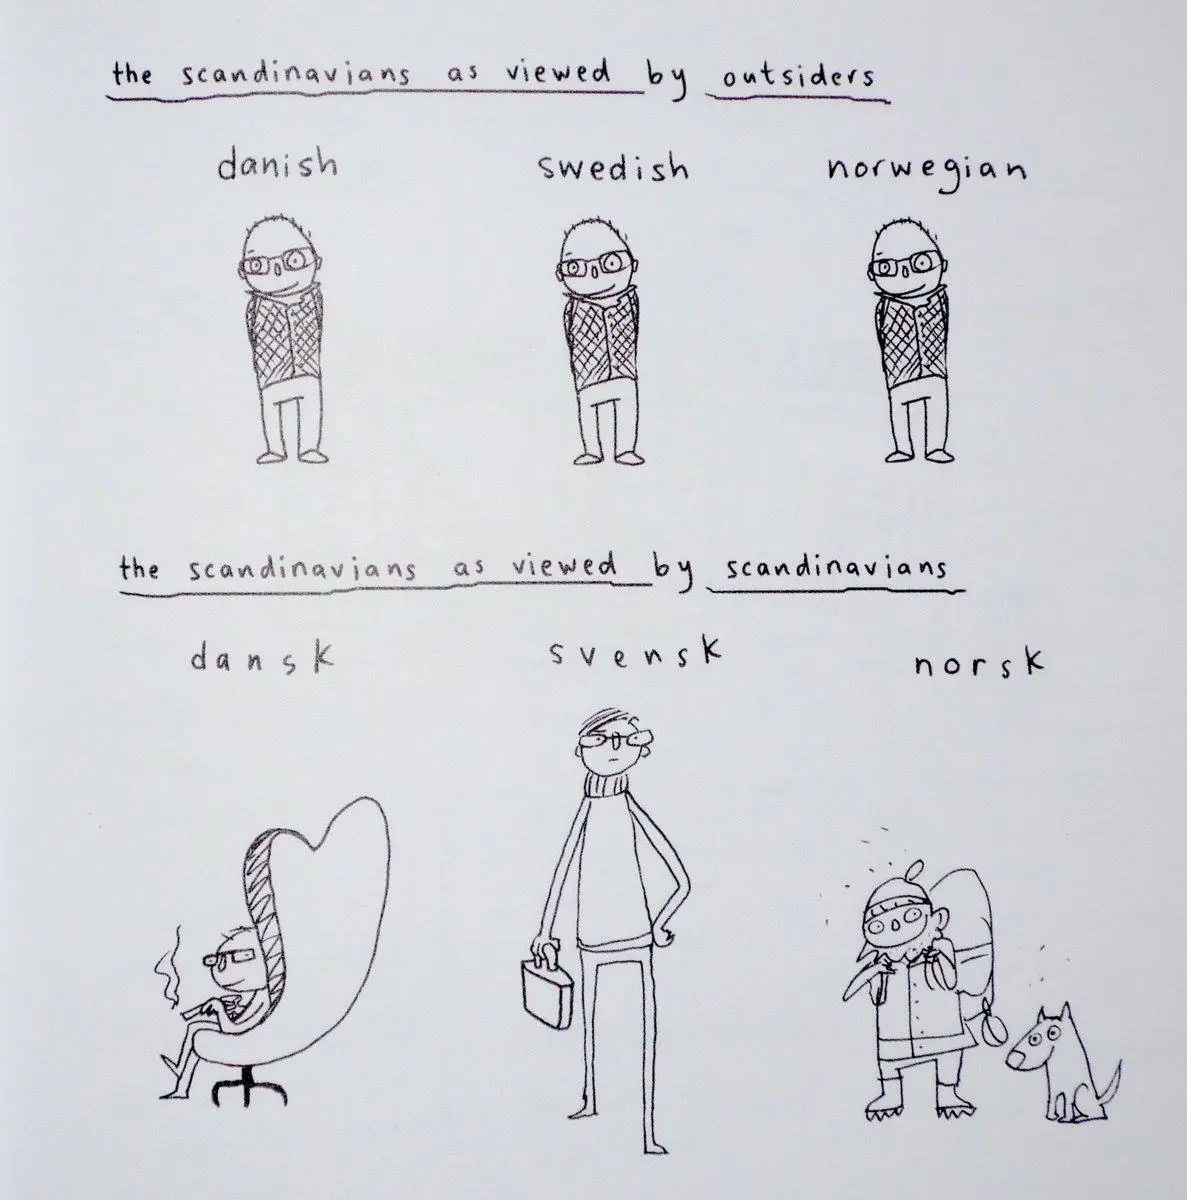 the scandinavians as viewed by outsiders
danish swedish norwegian
the scandinavians as viewed by scandinavians
dansk svensk norsk